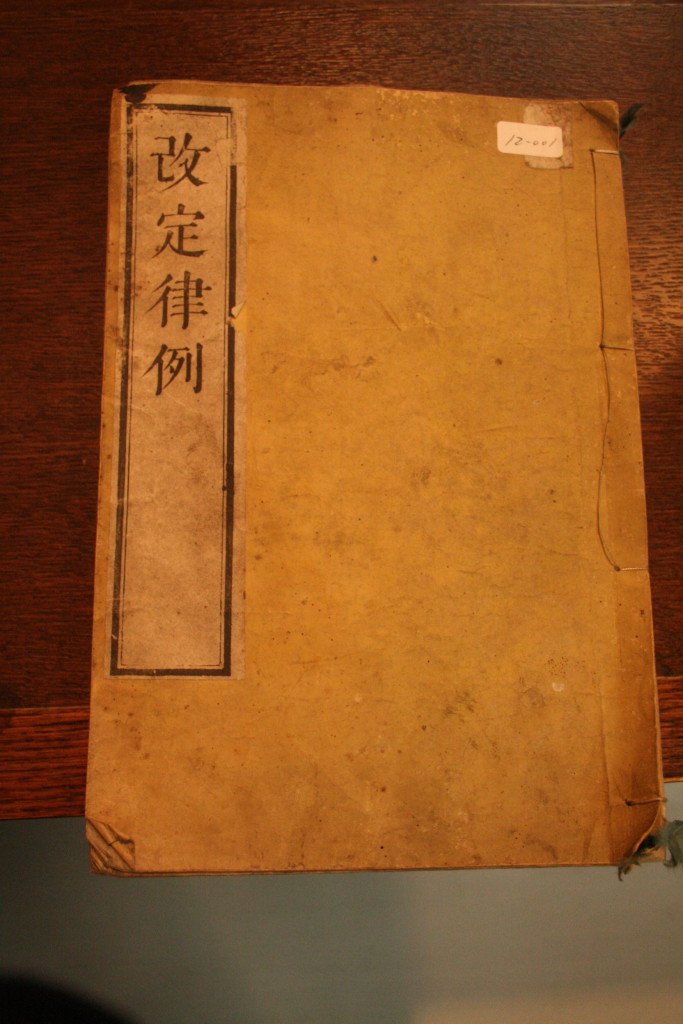 改定律例
12-001